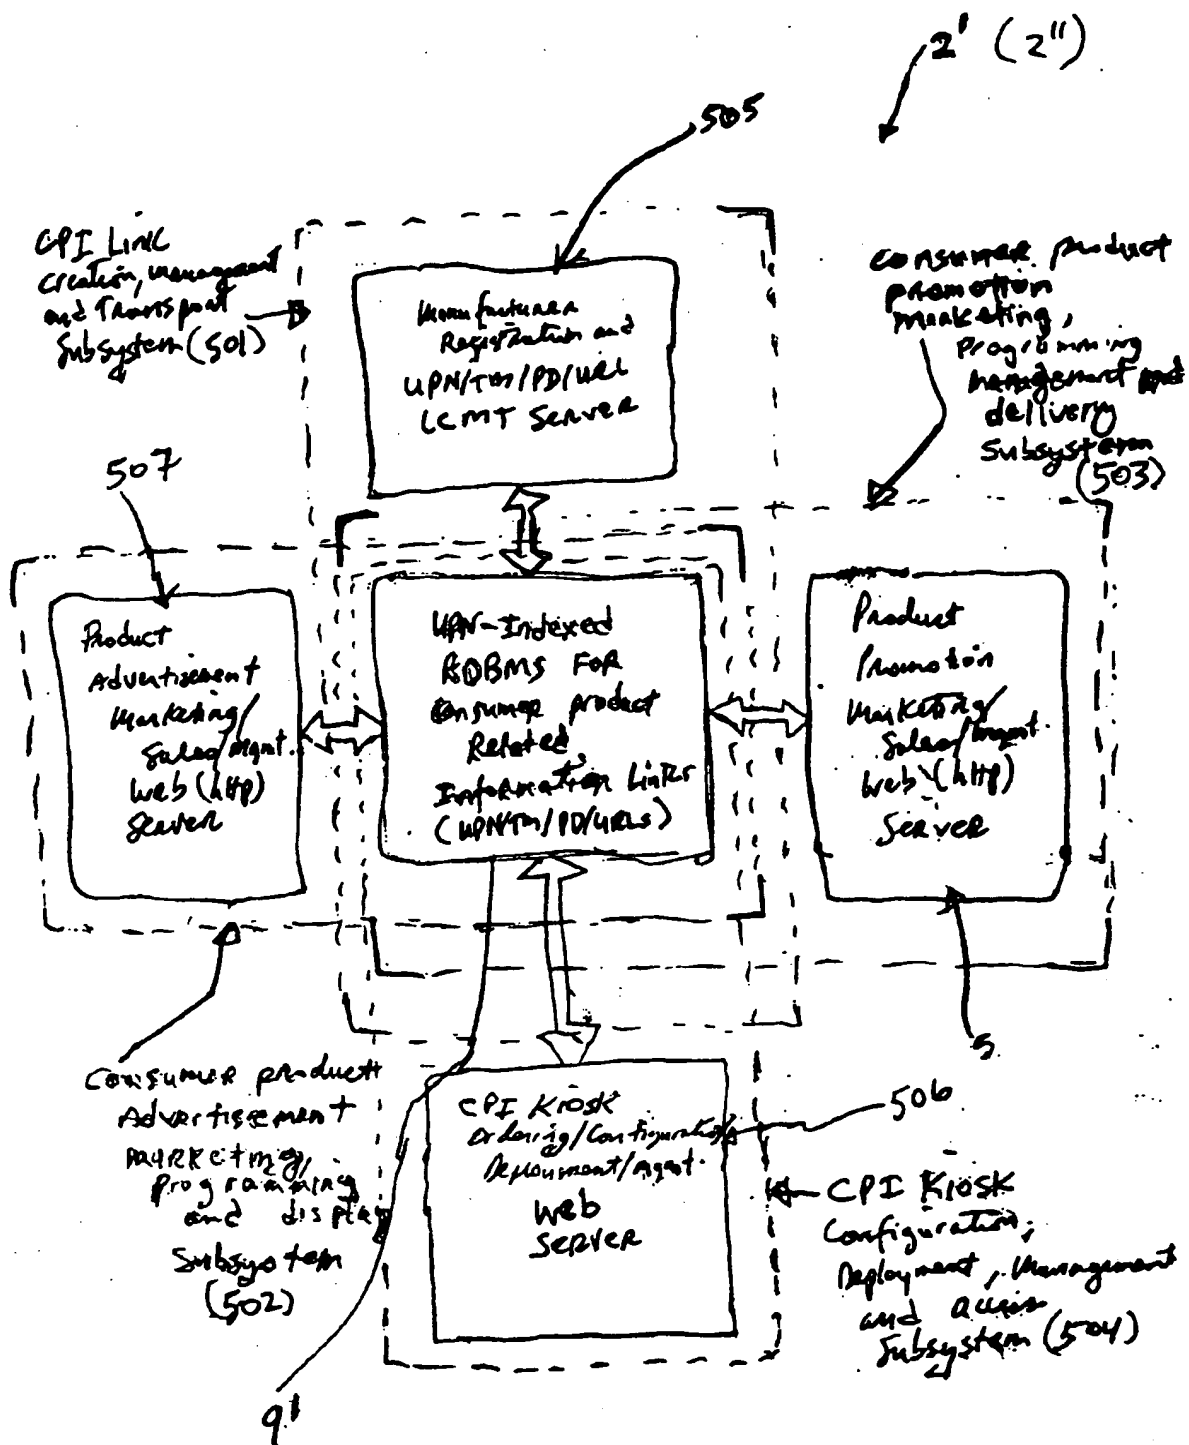 2' (2")
505
CPI Link
Creation, Management
and Transport
Subsystem (501)
Manufacturer
Registration and
UPN/TM/PD/URL
LCMT Server
Consumer product
promotion
marketing,
Programming
management and
delivery
Subsystem
(503)
507
Product
Advertisement
Marketing/
Sales/Mgmt.
Web (http)
Server
UPN-Indexed
RDBMS For
Consumer product
Related
Information Links
(UPN/TM/PD/URLs)
Product
Promotion
Marketing/
Sales/mgmt
Web (http)
Server
5
Consumer product
Advertisement
Marketing,
programming
and display
Subsystem
(502)
CPI Kiosk
Ordering/Configuration/
Deployment/Mgmt.
Web
Server
506
CPI Kiosk
Configuration,
Deployment, Management
and Access
Subsystem (504)
9'